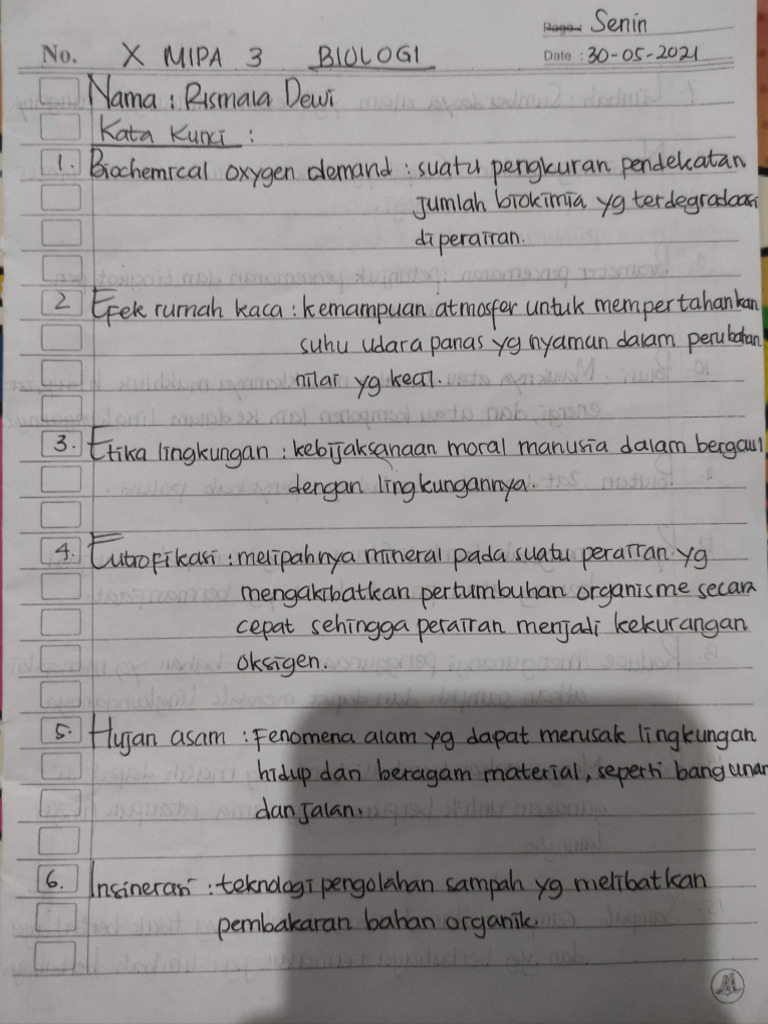 Page: Senin
No. X MIPA 3 BIOLOGI Date : 30-05-2021
Nama : Rismala Dewi
Kata Kunci :
1. Biochemical oxygen demand : suatu pengkuran pendekatan
jumlah biokimia yg terdegradasi
diperairan.
2 Efek rumah kaca : kemampuan atmosfer untuk mempertahankan
suhu udara panas yg nyaman dalam perubahan
nilai yg kecil.
3. Etika lingkungan : kebijaksanaan moral manusia dalam bergaul
dengan lingkungannya.
4. Eutrofikasi : melipahnya mineral pada suatu perairan yg
mengakibatkan pertumbuhan organisme secara
cepat sehingga perairan menjadi kekurangan
oksigen.
5. Hujan asam : Fenomena alam yg dapat merusak lingkungan
hidup dan beragam material, seperti bangunan
dan jalan.
6. Insinerasi : teknologi pengolahan sampah yg melibatkan
pembakaran bahan organik.